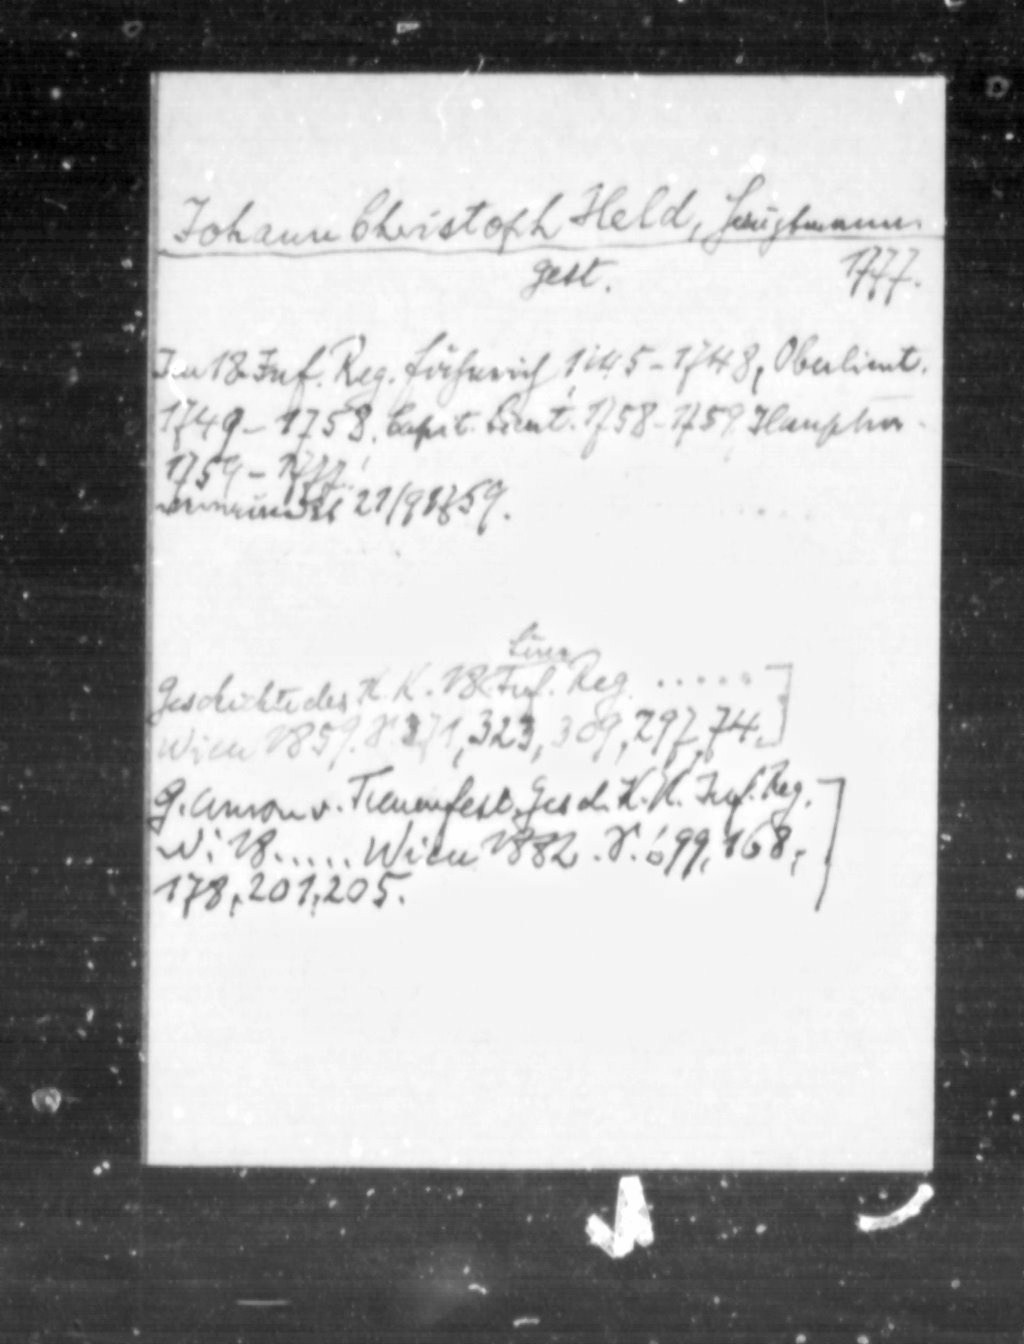 Johann Christoph Held, Hauptmann
gest. 1777.
Im 18. Inf. Reg. Fähnrich 1745-1748, Oberlieut.
1749-1758, Capit. Lieut. 1758-1759, Hauptm.
1759-1777.
verwundet 21/9 1759.
Linen
Geschichte des K. K. 18. Inf. Reg. .....]
Wien 1859. S. 271, 323, 309, 297, 74.
G. Amon v. Treuenfest, Gesch. K. K. Inf. Reg.
N: 18..... Wien 1882. S. 699, 168,
178, 201, 205.